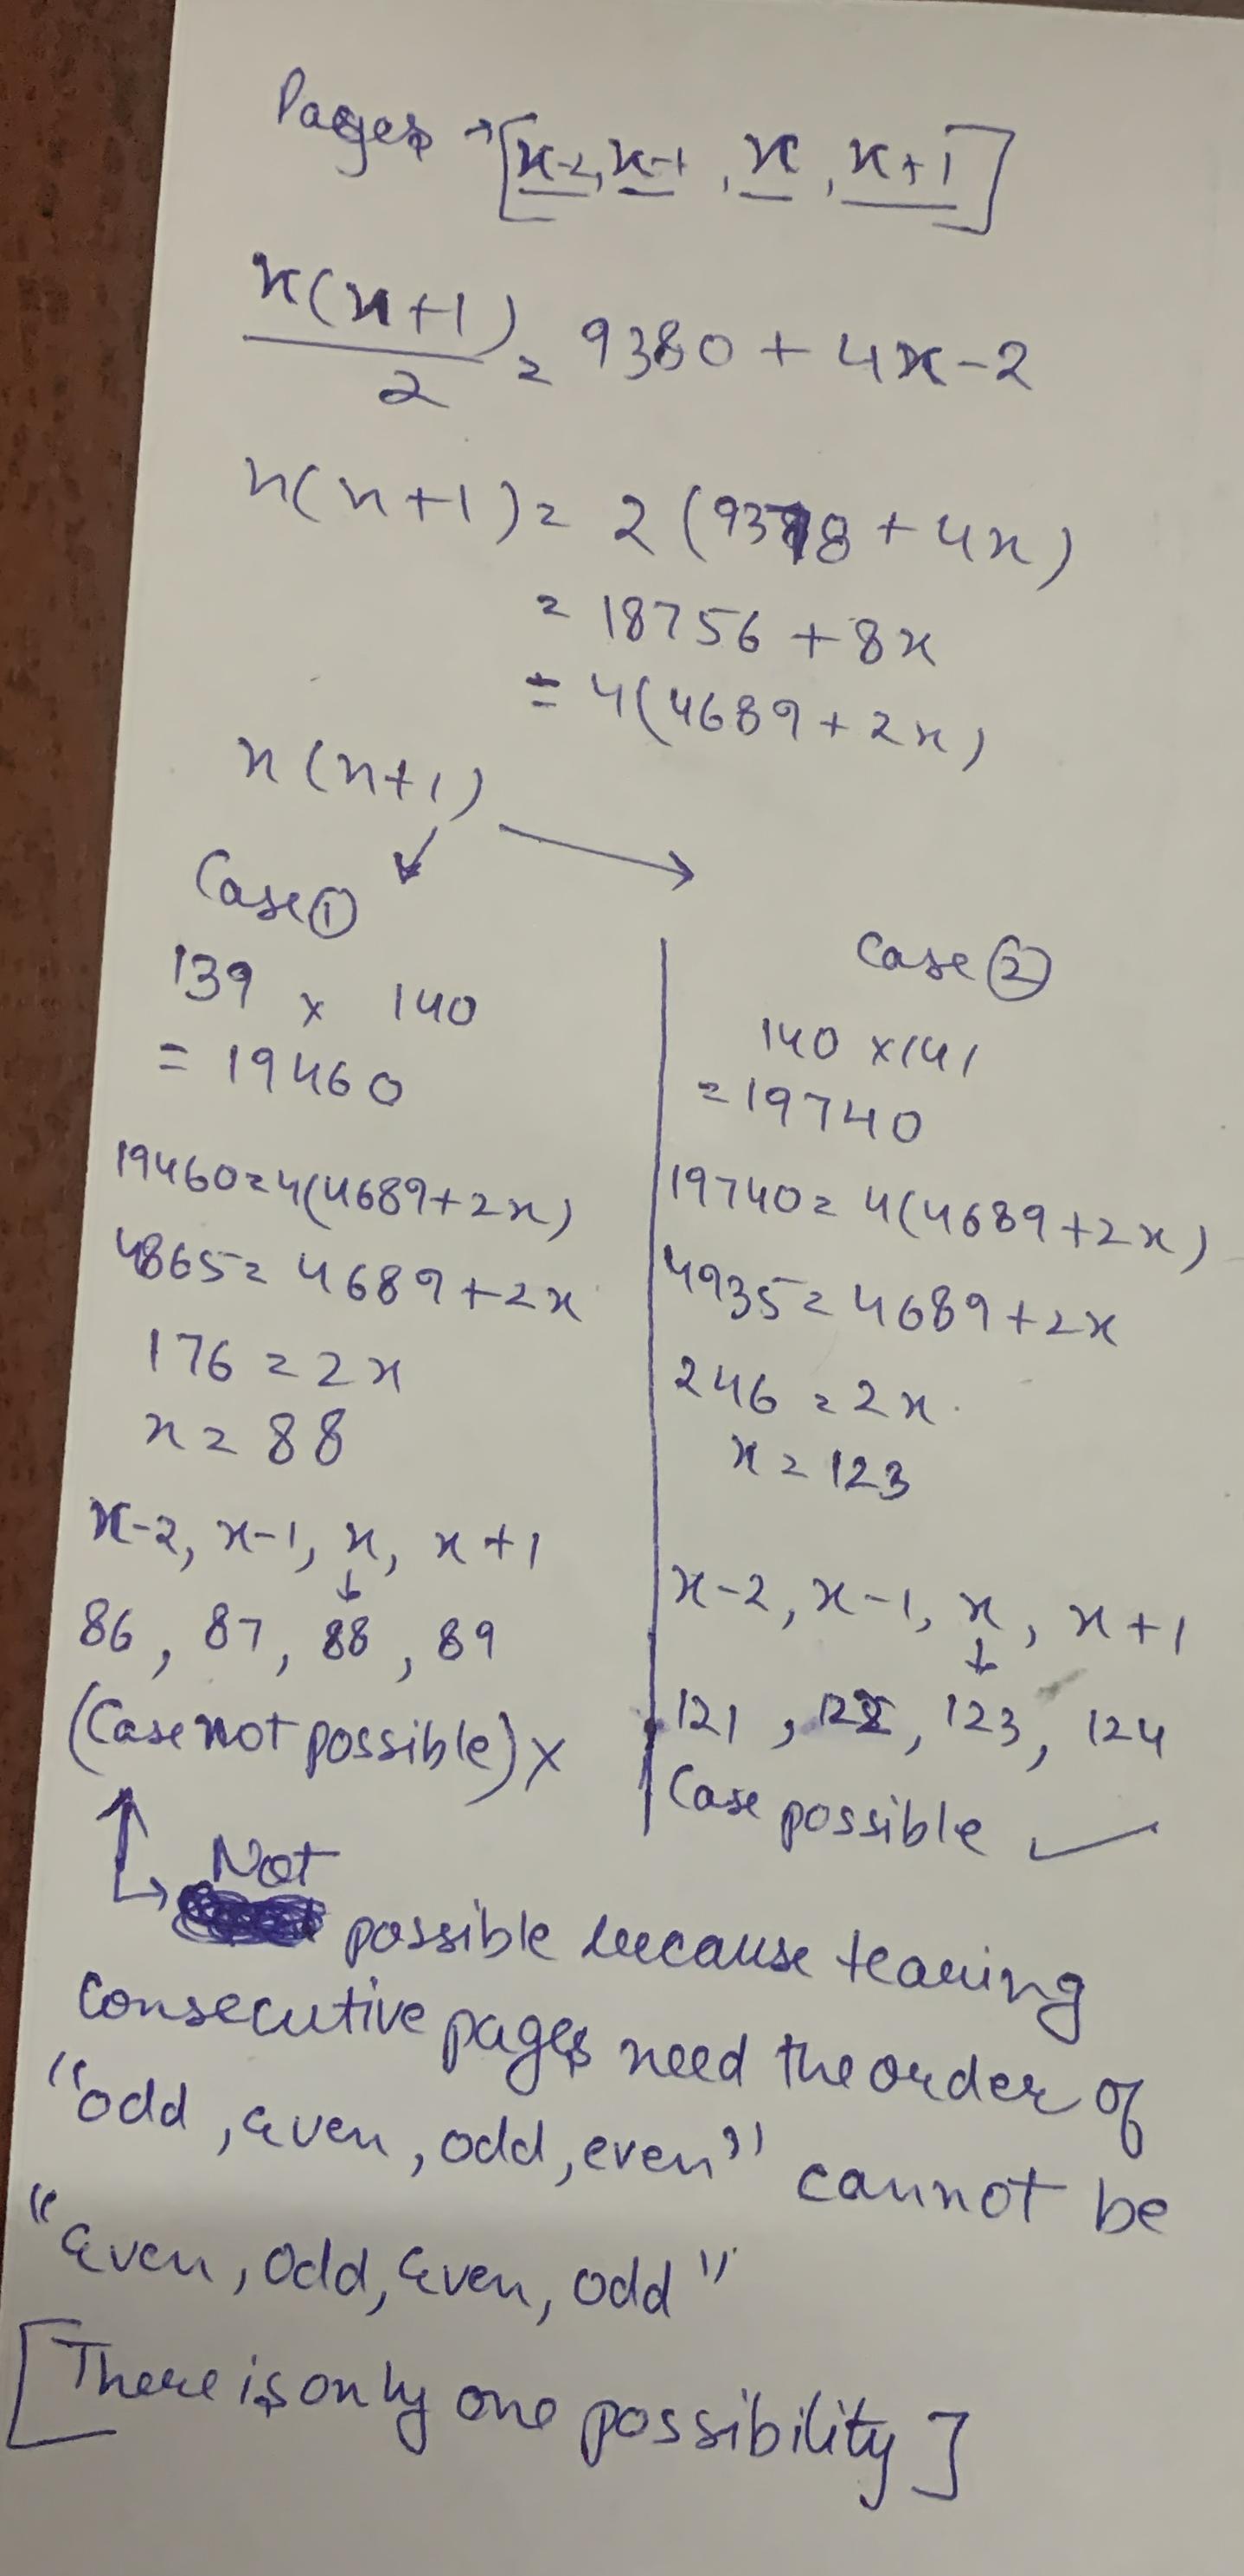 Pages → [x-2, x-1, x, x+1]
n(n+1)/2 = 9380 + 4x-2
n(n+1) = 2(9378 + 4x)
= 18756 + 8x
= 4(4689 + 2x)
n(n+1)
Case ①
139 x 140
= 19460
19460 = 4(4689+2x)
4865 = 4689+2x
176 = 2x
x = 88
x-2, x-1, x, x+1
↓
86, 87, 88, 89
(Case not possible) x
Case ②
140 x 141
= 19740
19740 = 4(4689+2x)
4935 = 4689+2x
246 = 2x
x = 123
x-2, x-1, x, x+1
↓
121, 122, 123, 124
Case possible ✓
Not
possible because tearing
consecutive pages need the order of
"odd, even, odd, even" cannot be
"even, odd, even, odd"
[There is only one possibility]